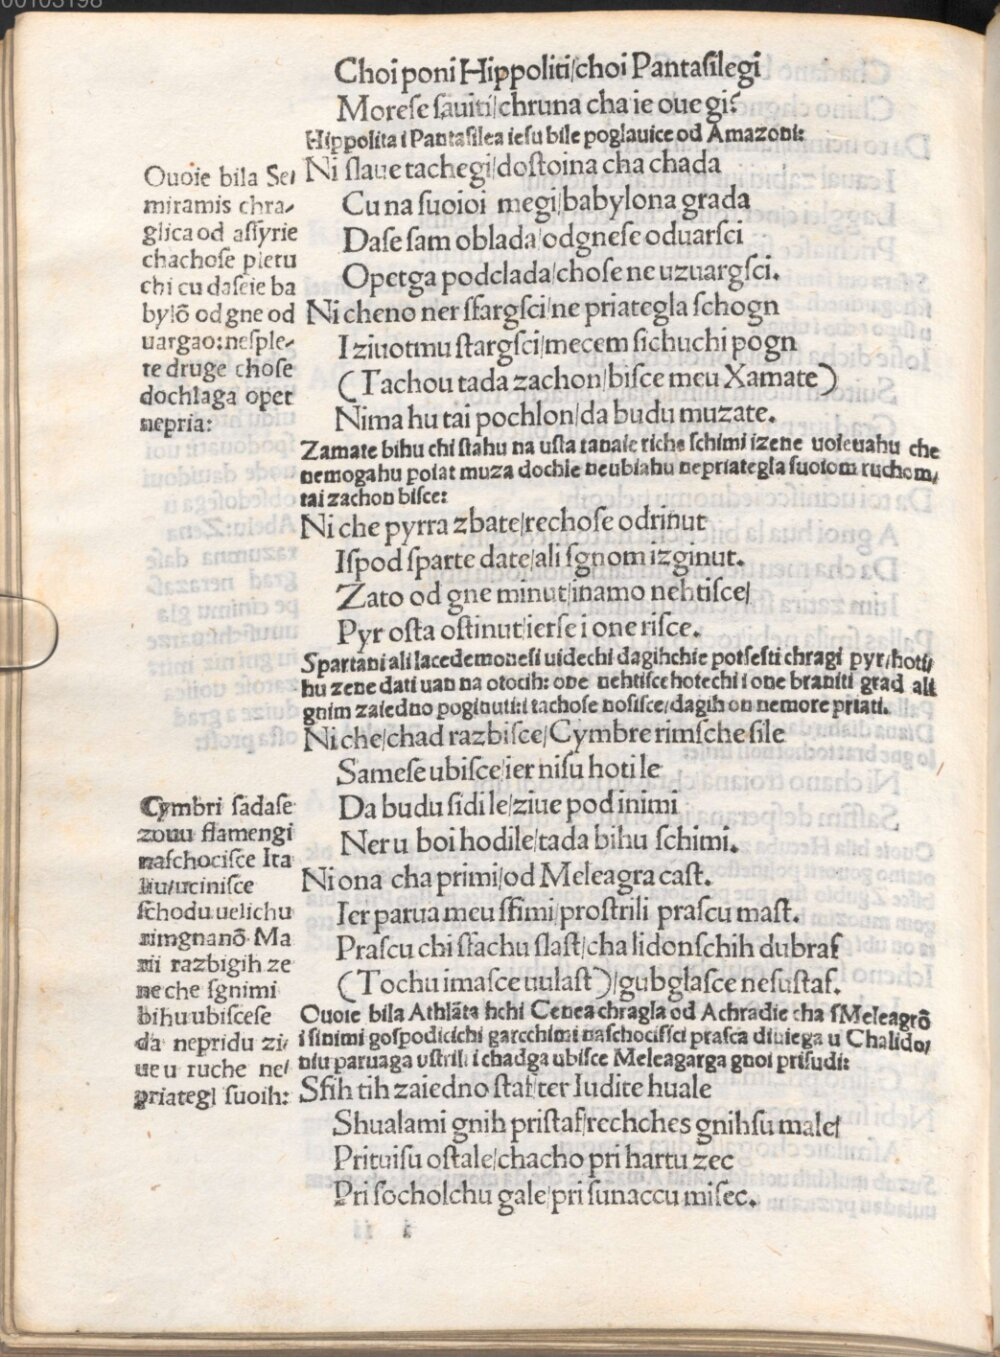 Choi poni Hippoliti/choi Pantasilegi
Morese sauiti/chruna cha ie oue gi?
Hippolita i Pantasilea iesu bile poglauice od Amazoni:
Ni slaue tachegi/dostoina cha chada
Cu na suoioi megi/babylona grada
Dase sam oblada/odgnese oduarsci
Opetga podclada/chose ne uzuargsci.
Ni cheno ner sfargsci/ne priategla schogn
I ziuotmu stargsci/mecem sichuchi pogn
(Tachou tada zachon/bisce meu Xamate)
Nima hu tai pochlon/da budu muzate.
Zamate bihu chi stahu na usta tanaie riche schimi izene uoieuahu che
nemogahu poiat muza dochle neubiahu nepriategla suoiom ruchom/
tai zachon bisce:
Ni che pyrra zbate/rechose odrinut
Ispod sparte date/ali sgnom izginut.
Zato od gne minut/inamo nehtisce/
Pyr osta ostinut/ierse i one risce.
Spartani ali lacedemonesi uidechi dagihchie potsesti chragl pyr/hoti/
hu zene dati uan na otocih: one nehtisce hotechi i one braniti grad ali
gnim zaiedno poginuti: i tachose nosisce/dagih on nemore priati.
Ni che/chad razbisce/Cymbre rimsche sile
Samese ubisce/ier nisu hotile
Da budu sidile/ziue pod inimi
Ner u boi hodile/tada bihu schimi.
Ni ona cha primi/od Meleagra cast.
Ier parua meu sfimi/prostrili prascu mast.
Prascu chi stachu slast/cha lidonschih dubraf
(Tochu imasce uulast)/gubglasce nesustaf.
Ouoie bila Athlāta hchi Cenea chragla od Achradie cha sMeleagrō
i sinimi gospodicichi garcchimi naschocisci prasca diuiega u Chalido/
niu paruaga ustrili: i chadga ubisce Meleagarga gnoi prisudi:
Sfih tih zaiedno staf/ter Iudite huale
Shualami gnih pristaf/rechches gnihsu male/
Prituisu ostale/chacho pri hartu zec
Pri socholchu gale/pri sunaccu misec.
Ouoie bila Se/
miramis chra/
glica od assyrie
chachose pletu
chi cu daseie ba
bylō odgne od
uargao: nesple/
te druge chose
dochlaga opet
nepria:
Cymbri sadase
zouu flamengi
naschocisce Ita
liu/ucinisce
schodu uelichu
rimgnanō. Ma
rii razbigih ze
ne che sgnimi
bihu ubiscese
da nepridu zi/
ue u ruche ne/
priategl suoih:
i ii